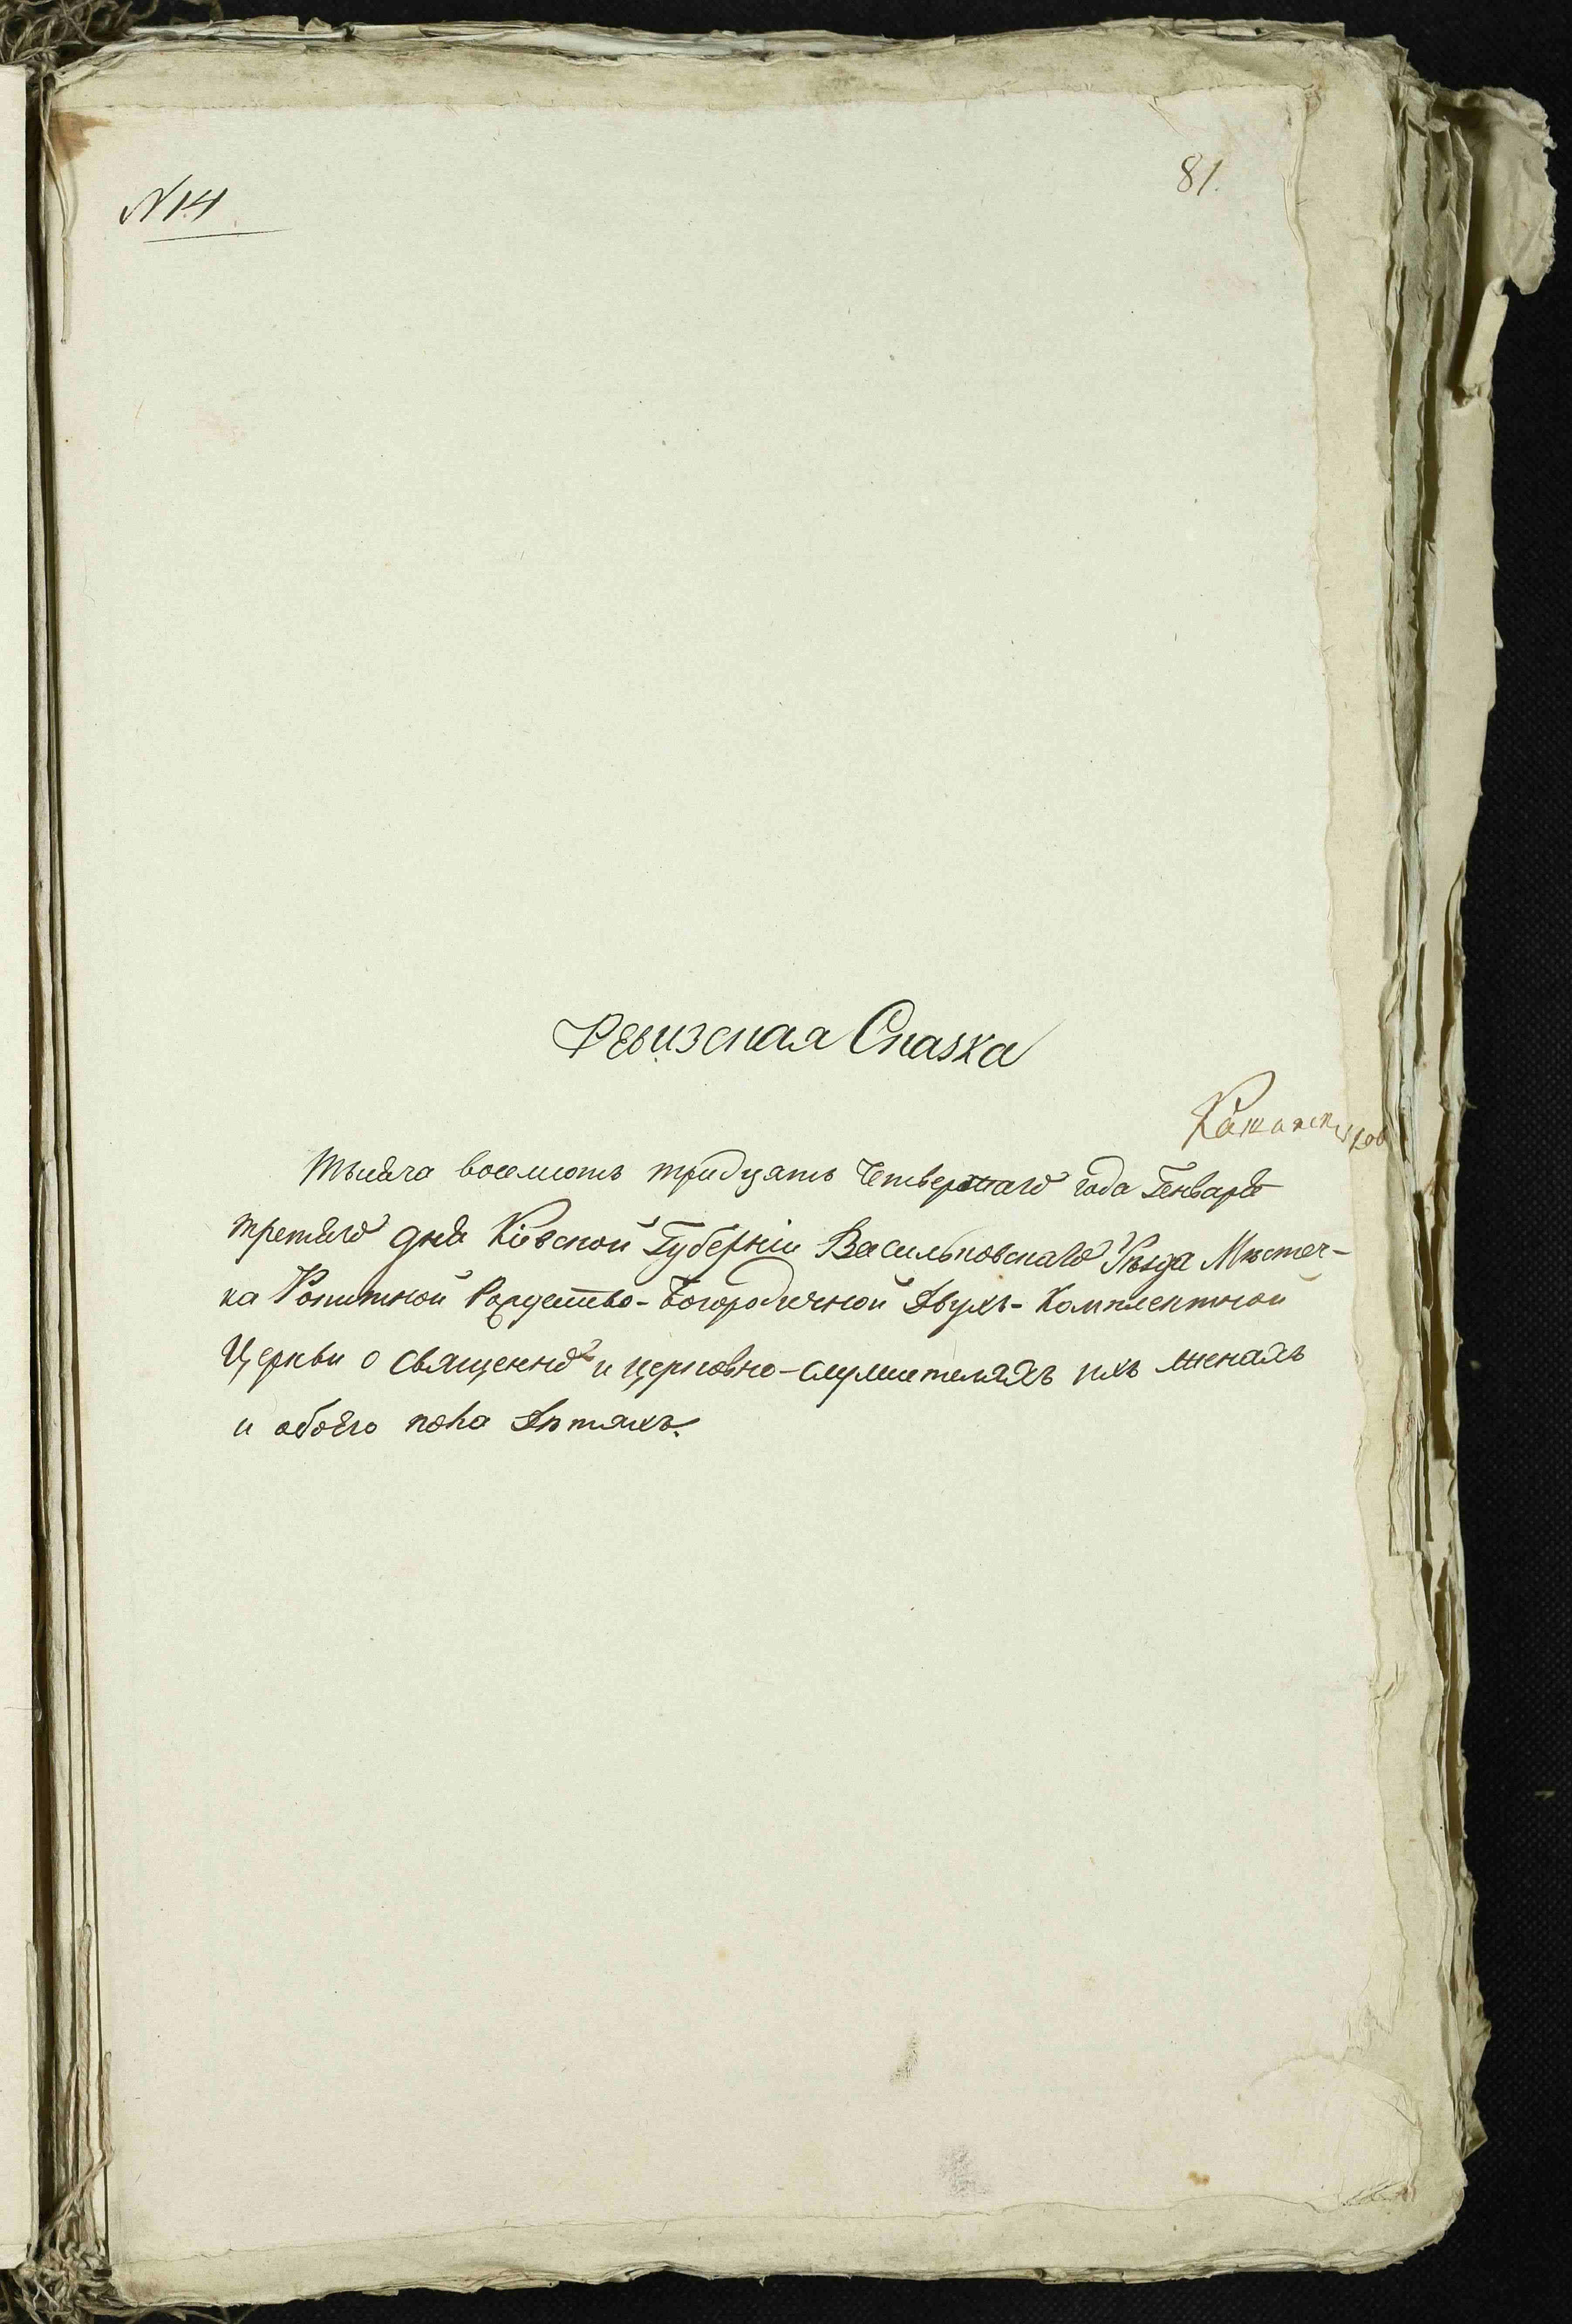 N 14
81.
Ревизская Сказка
Тысяча восемсотъ тридцять четвертаго года Генваря
третяго дня Кіевской Губерніи Васильковскаго Уѣзда Мѣстеч-
ка Ракитной Рождество-Богородичной Двухъ-Комплектной
Церкви о священно и церковно-служителяхъ ихъ женахъ
и обоего пола Дѣтяхъ.